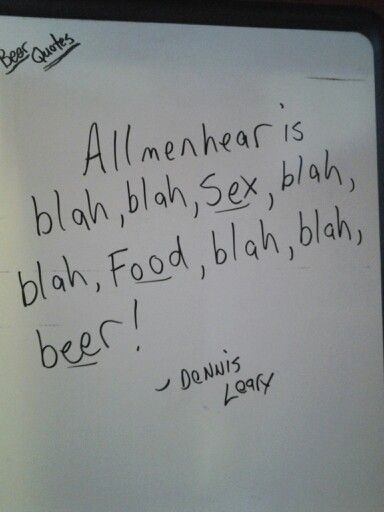 Beer Quotes
All men hear is
blah, blah, Sex, blah,
blah, Food, blah, blah,
beer!
- Dennis
Leary